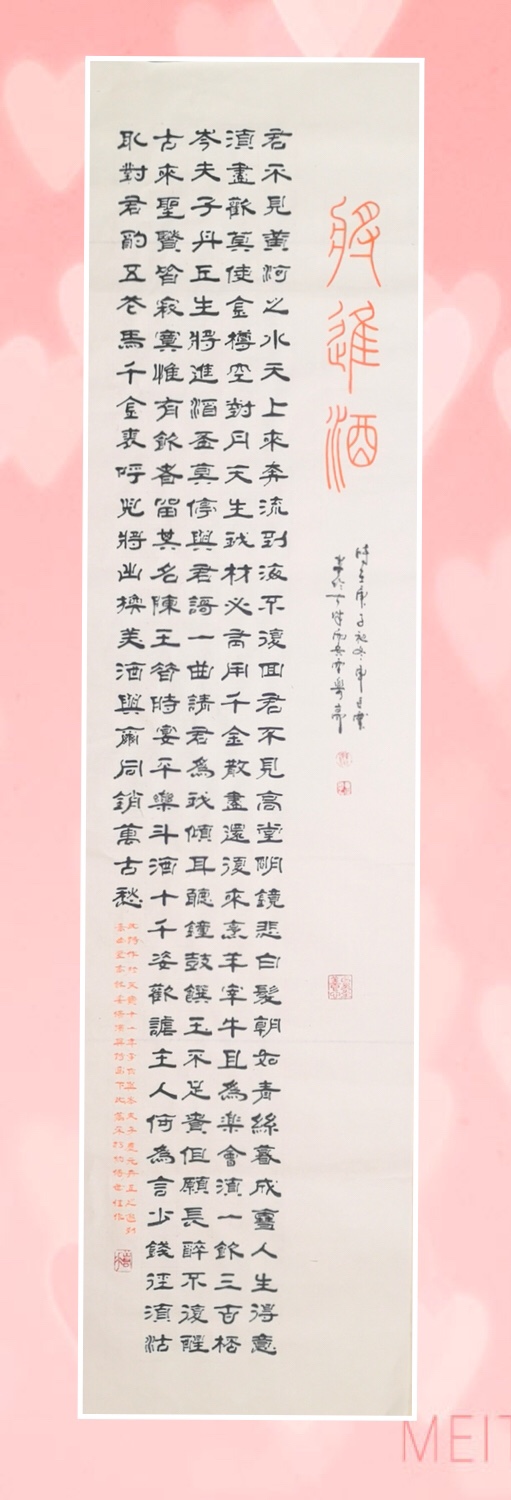 將進酒
時在庚子初冬
君不見黃河之水天上來奔流到海不復回君不見高堂朙鏡悲白髮朝如青絲暮成雪人生得意
須盡歡莫使金樽空對月天生我材必有用千金散盡還復來烹羊宰牛且為樂會須一飲三百桮
岑夫子丹丘生將進酒盃莫停與君謌一曲請君為我傾耳聽鐘鼓饌玉不足貴但願長醉不復醒
古來聖賢皆寂寞惟有飲者留其名陳王昔時宴平樂斗酒十千恣歡謔主人何為言少錢徑須沽
取對君酌五花馬千金裘呼兒將出換美酒與爾同銷萬古愁
MEIT